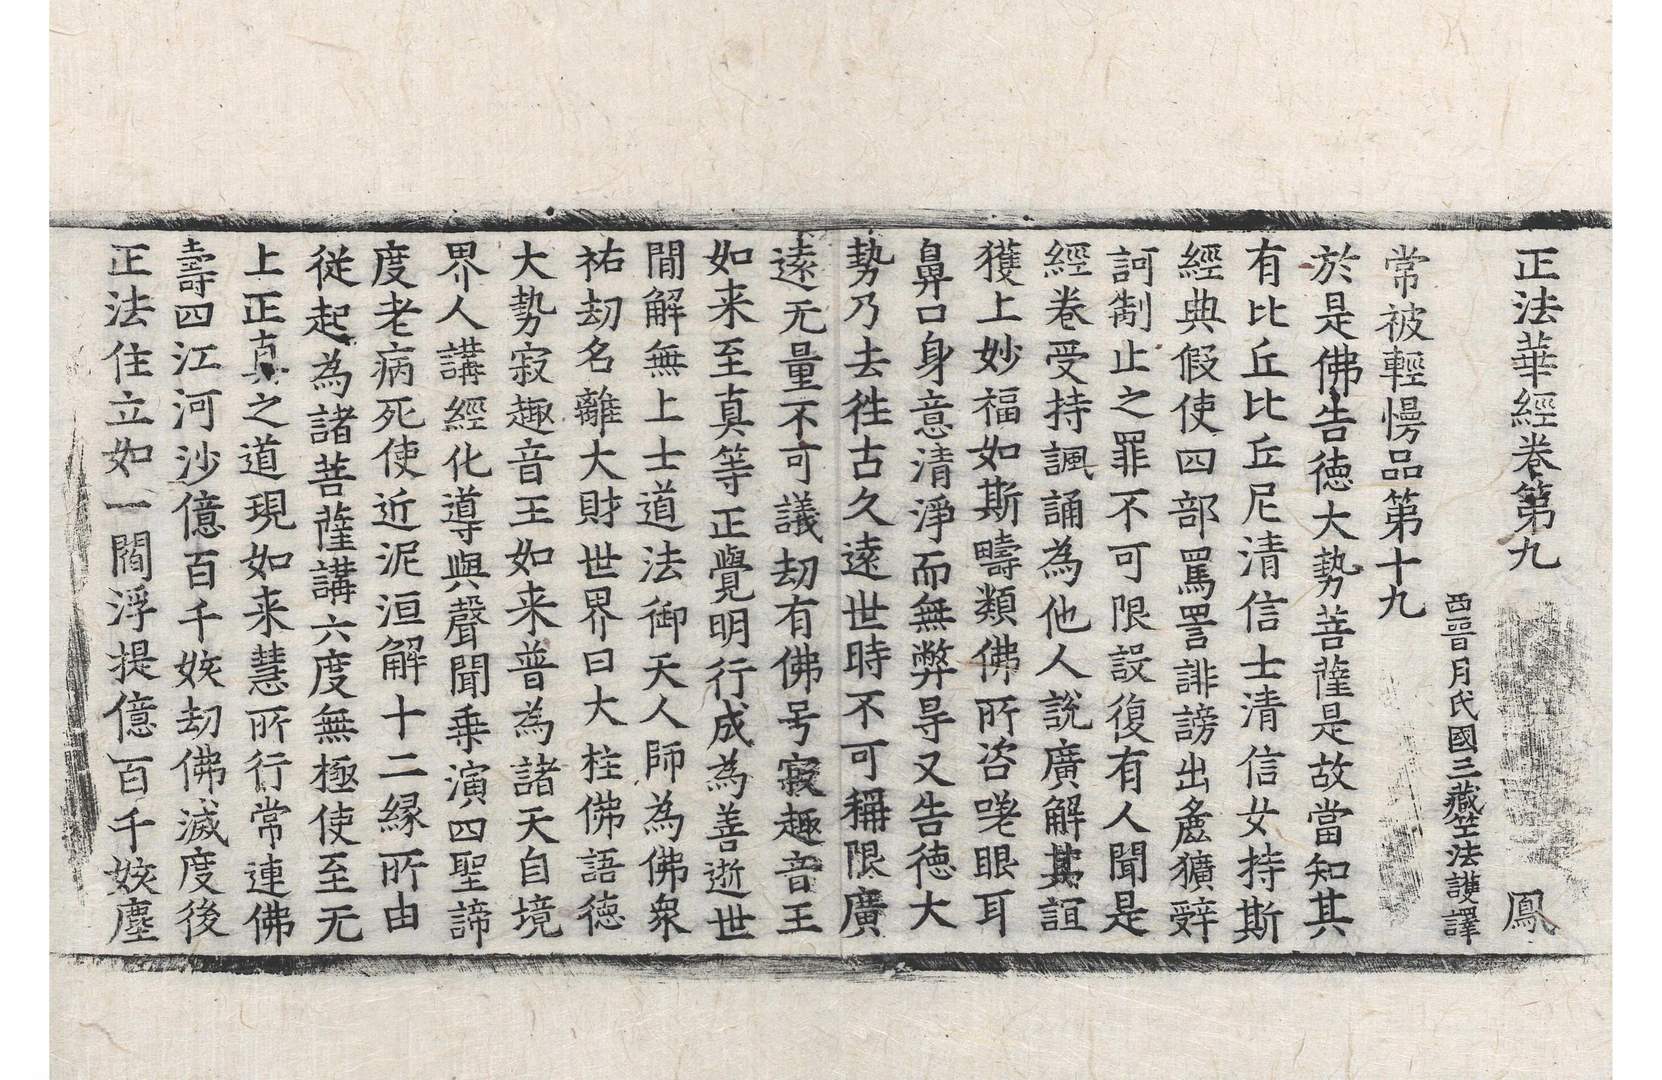 正法華經卷第九 鳳
西晉月氏國三藏竺法護譯
常被輕慢品第十九
於是佛告德大勢菩薩是故當知其
有比丘比丘尼清信士清信女持斯
經典假使四部罵詈誹謗出麁獷辤
訶制止之罪不可限設復有人聞是
經卷受持諷誦為他人說廣解其誼
獲上妙福如斯疇類佛所咨嗟眼耳
鼻口身意清淨而無弊㝵又告德大
勢乃去徃古久遠世時不可稱限廣
遠无量不可議劫有佛号寂趣音王
如来至真等正覺明行成為善逝世
間解無上士道法御天人師為佛衆
祐劫名離大財世界曰大柱佛語德
大勢寂趣音王如来普為諸天自境
界人講經化導與聲聞乗演四聖諦
度老病死使近泥洹解十二緣所由
從起為諸菩薩講六度無極使至无
上正真之道現如来慧所行常連佛
壽四江河沙億百千姟劫佛滅度後
正法住立如一閻浮提億百千姟塵